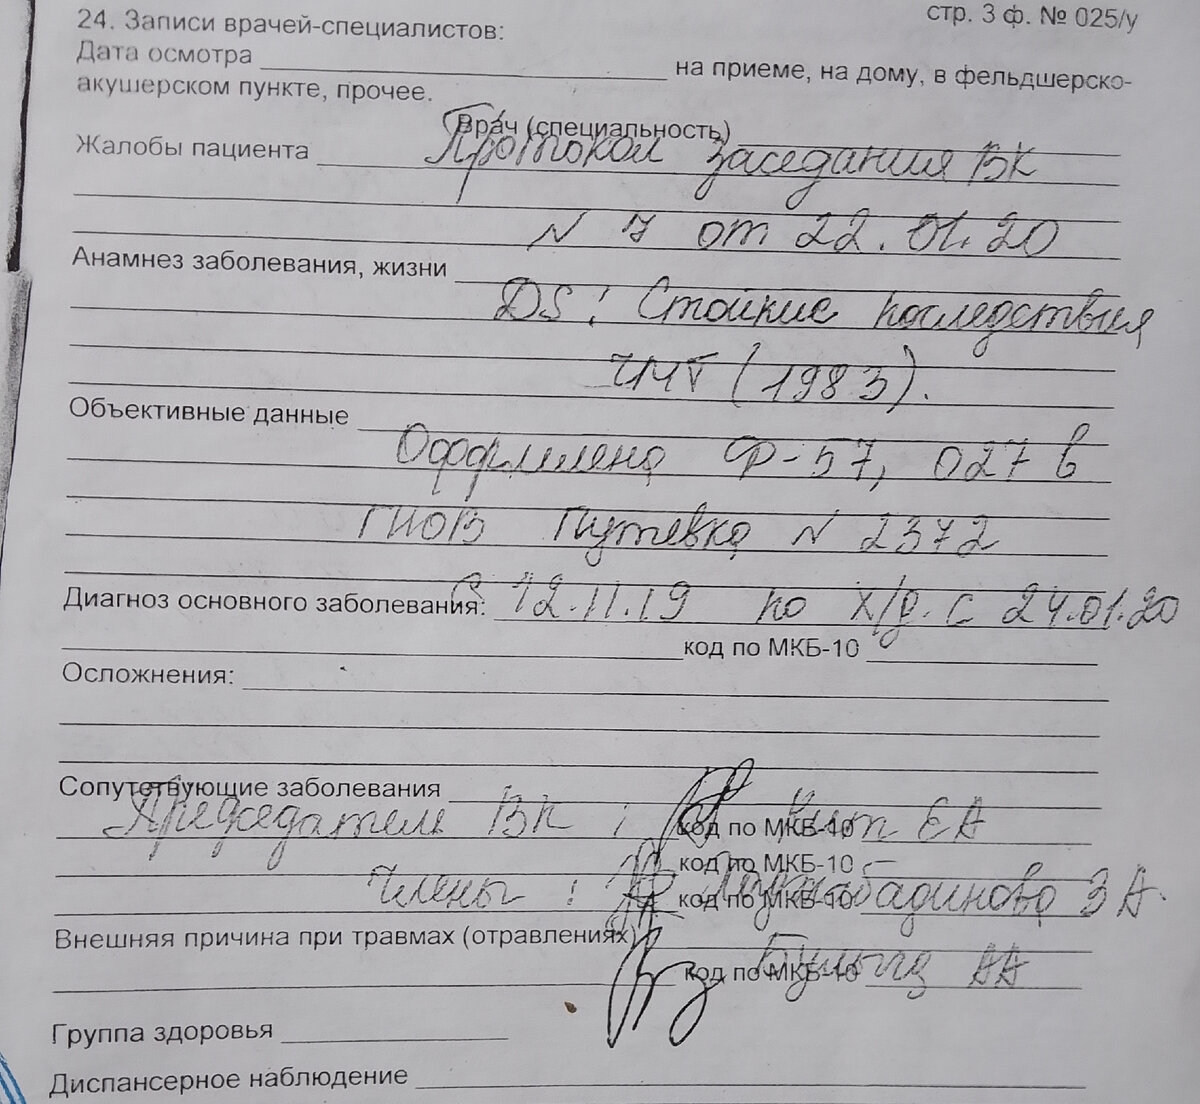 стр. 3 ф. № 025/у
24. Записи врачей-специалистов:
Дата осмотра на приеме, на дому, в фельдшерско-
акушерском пункте, прочее.
Врач (специальность)
Жалобы пациента Протокол заседания ВК
N 7 от 22.01.20
Анамнез заболевания, жизни
DS: Стойкие последствия
ЧМТ (1983).
Объективные данные
Оформлена Ф-57, 027 в
ГИОВ Путевка N 2372
Диагноз основного заболевания: с 12.11.19 по х/д. с 24.01.20
код по МКБ-10
Осложнения:
Сопутствующие заболевания
Председатель ВК : код по МКБ-10 ЕА
код по МКБ-10
Члены : код по МКБ-10 З А.
Внешняя причина при травмах (отравлениях)
код по МКБ-10 АА
Группа здоровья
Диспансерное наблюдение